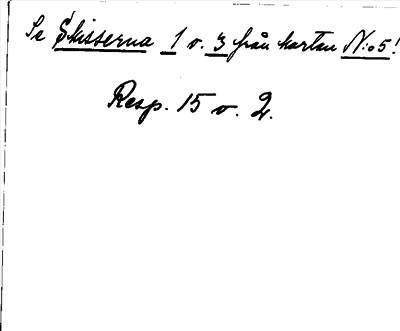 Se Skisserna 1 v. 3 från kartan N:o 5!
Resp. 15 v. 2.